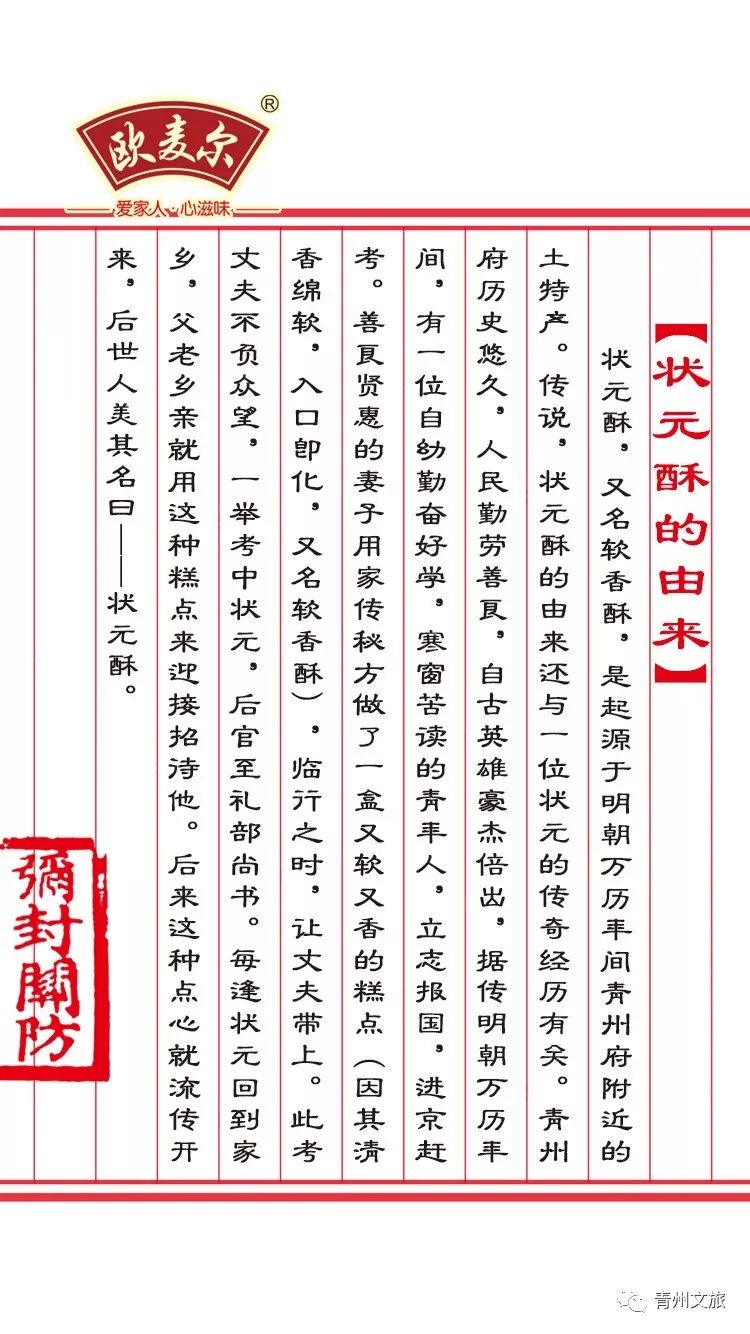 欧麦尔
®
爱家人·心滋味
【状元酥的由来】
状元酥，又名软香酥，是起源于明朝万历年间青州府附近的
土特产。传说，状元酥的由来还与一位状元的传奇经历有关。青州
府历史悠久，人民勤劳善良，自古英雄豪杰倍出，据传明朝万历年
间，有一位自幼勤奋好学，寒窗苦读的青年人，立志报国，进京赶
考。善良贤惠的妻子用家传秘方做了一盒又软又香的糕点（因其清
香绵软，入口即化，又名软香酥），临行之时，让丈夫带上。此考
丈夫不负众望，一举考中状元，后官至礼部尚书。每逢状元回到家
乡，父老乡亲就用这种糕点来迎接招待他。后来这种点心就流传开
来，后世人美其名曰——状元酥。
弥封關防
青州文旅